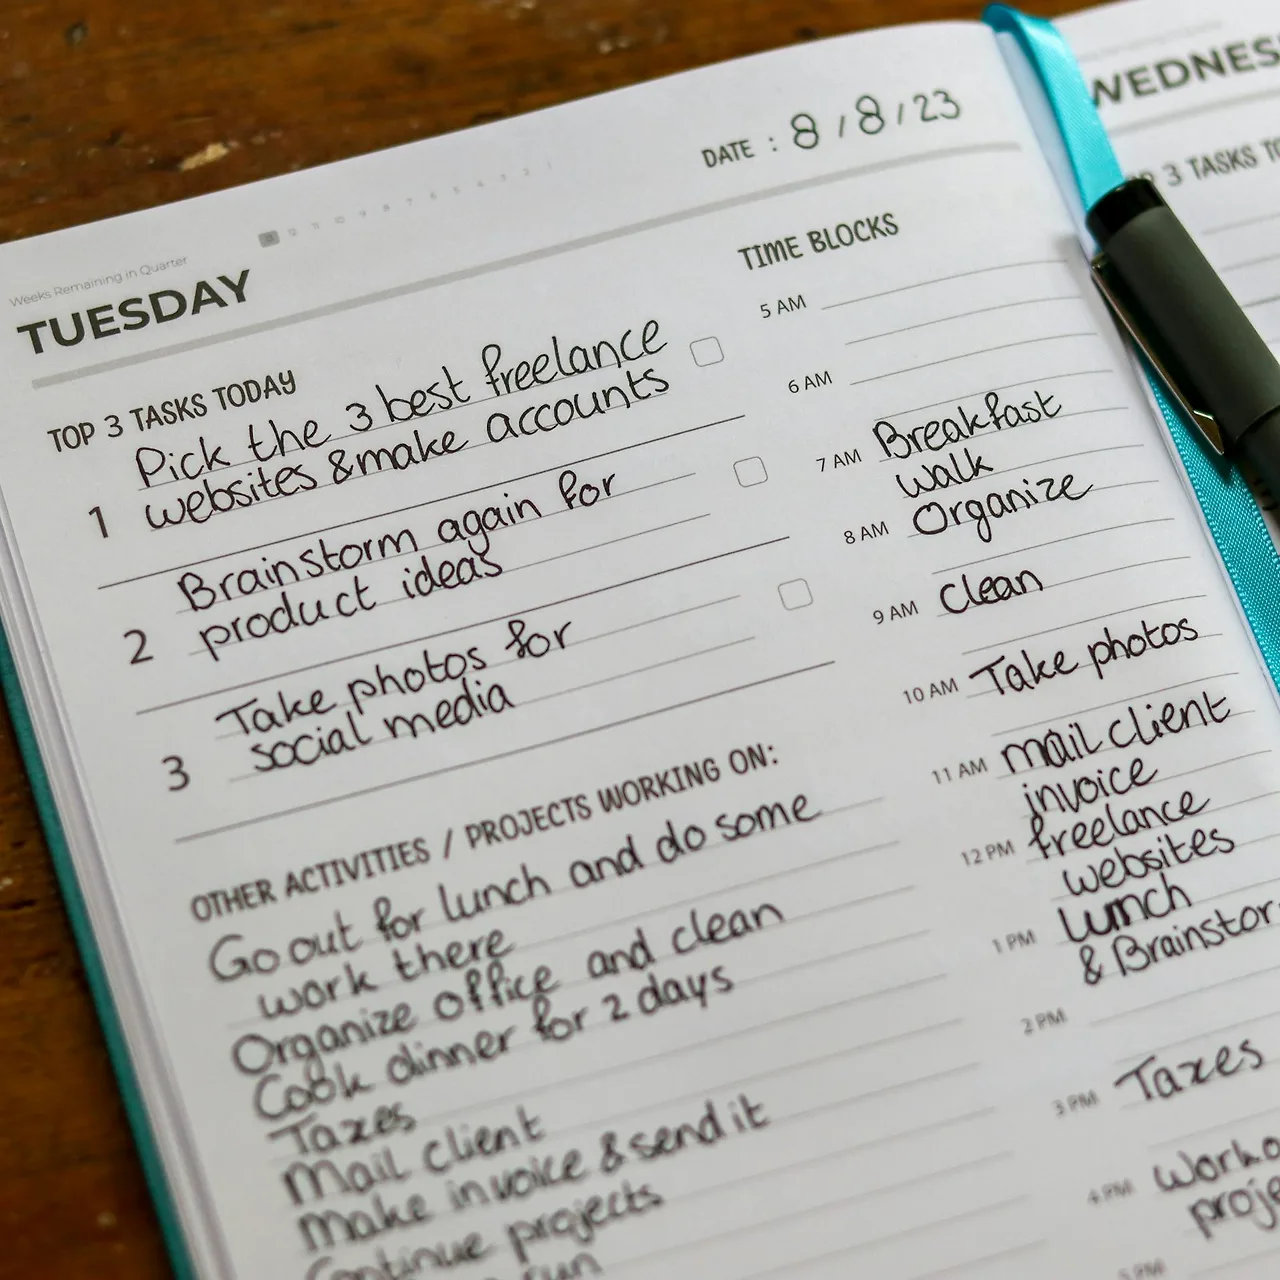 Weeks Remaining in Quarter
TUESDAY
DATE : 8/8/23
TOP 3 TASKS TODAY
1 Pick the 3 best freelance
websites & make accounts
2 Brainstorm again for
product ideas
3 Take photos for
social media
OTHER ACTIVITIES / PROJECTS WORKING ON:
Go out for lunch and do some
work there
Organize office and clean
Cook dinner for 2 days
Taxes
Mail client
Make invoice & send it
Continue projects
run
TIME BLOCKS
5 AM
6 AM
7 AM Breakfast
walk
8 AM Organize
9 AM Clean
10 AM Take photos
11 AM mail client
invoice
12 PM freelance
websites
1 PM Lunch
& Brainstor
2 PM
3 PM Taxes
4 PM Worko
proje
5 PM
WEDNES
3 TASKS TO